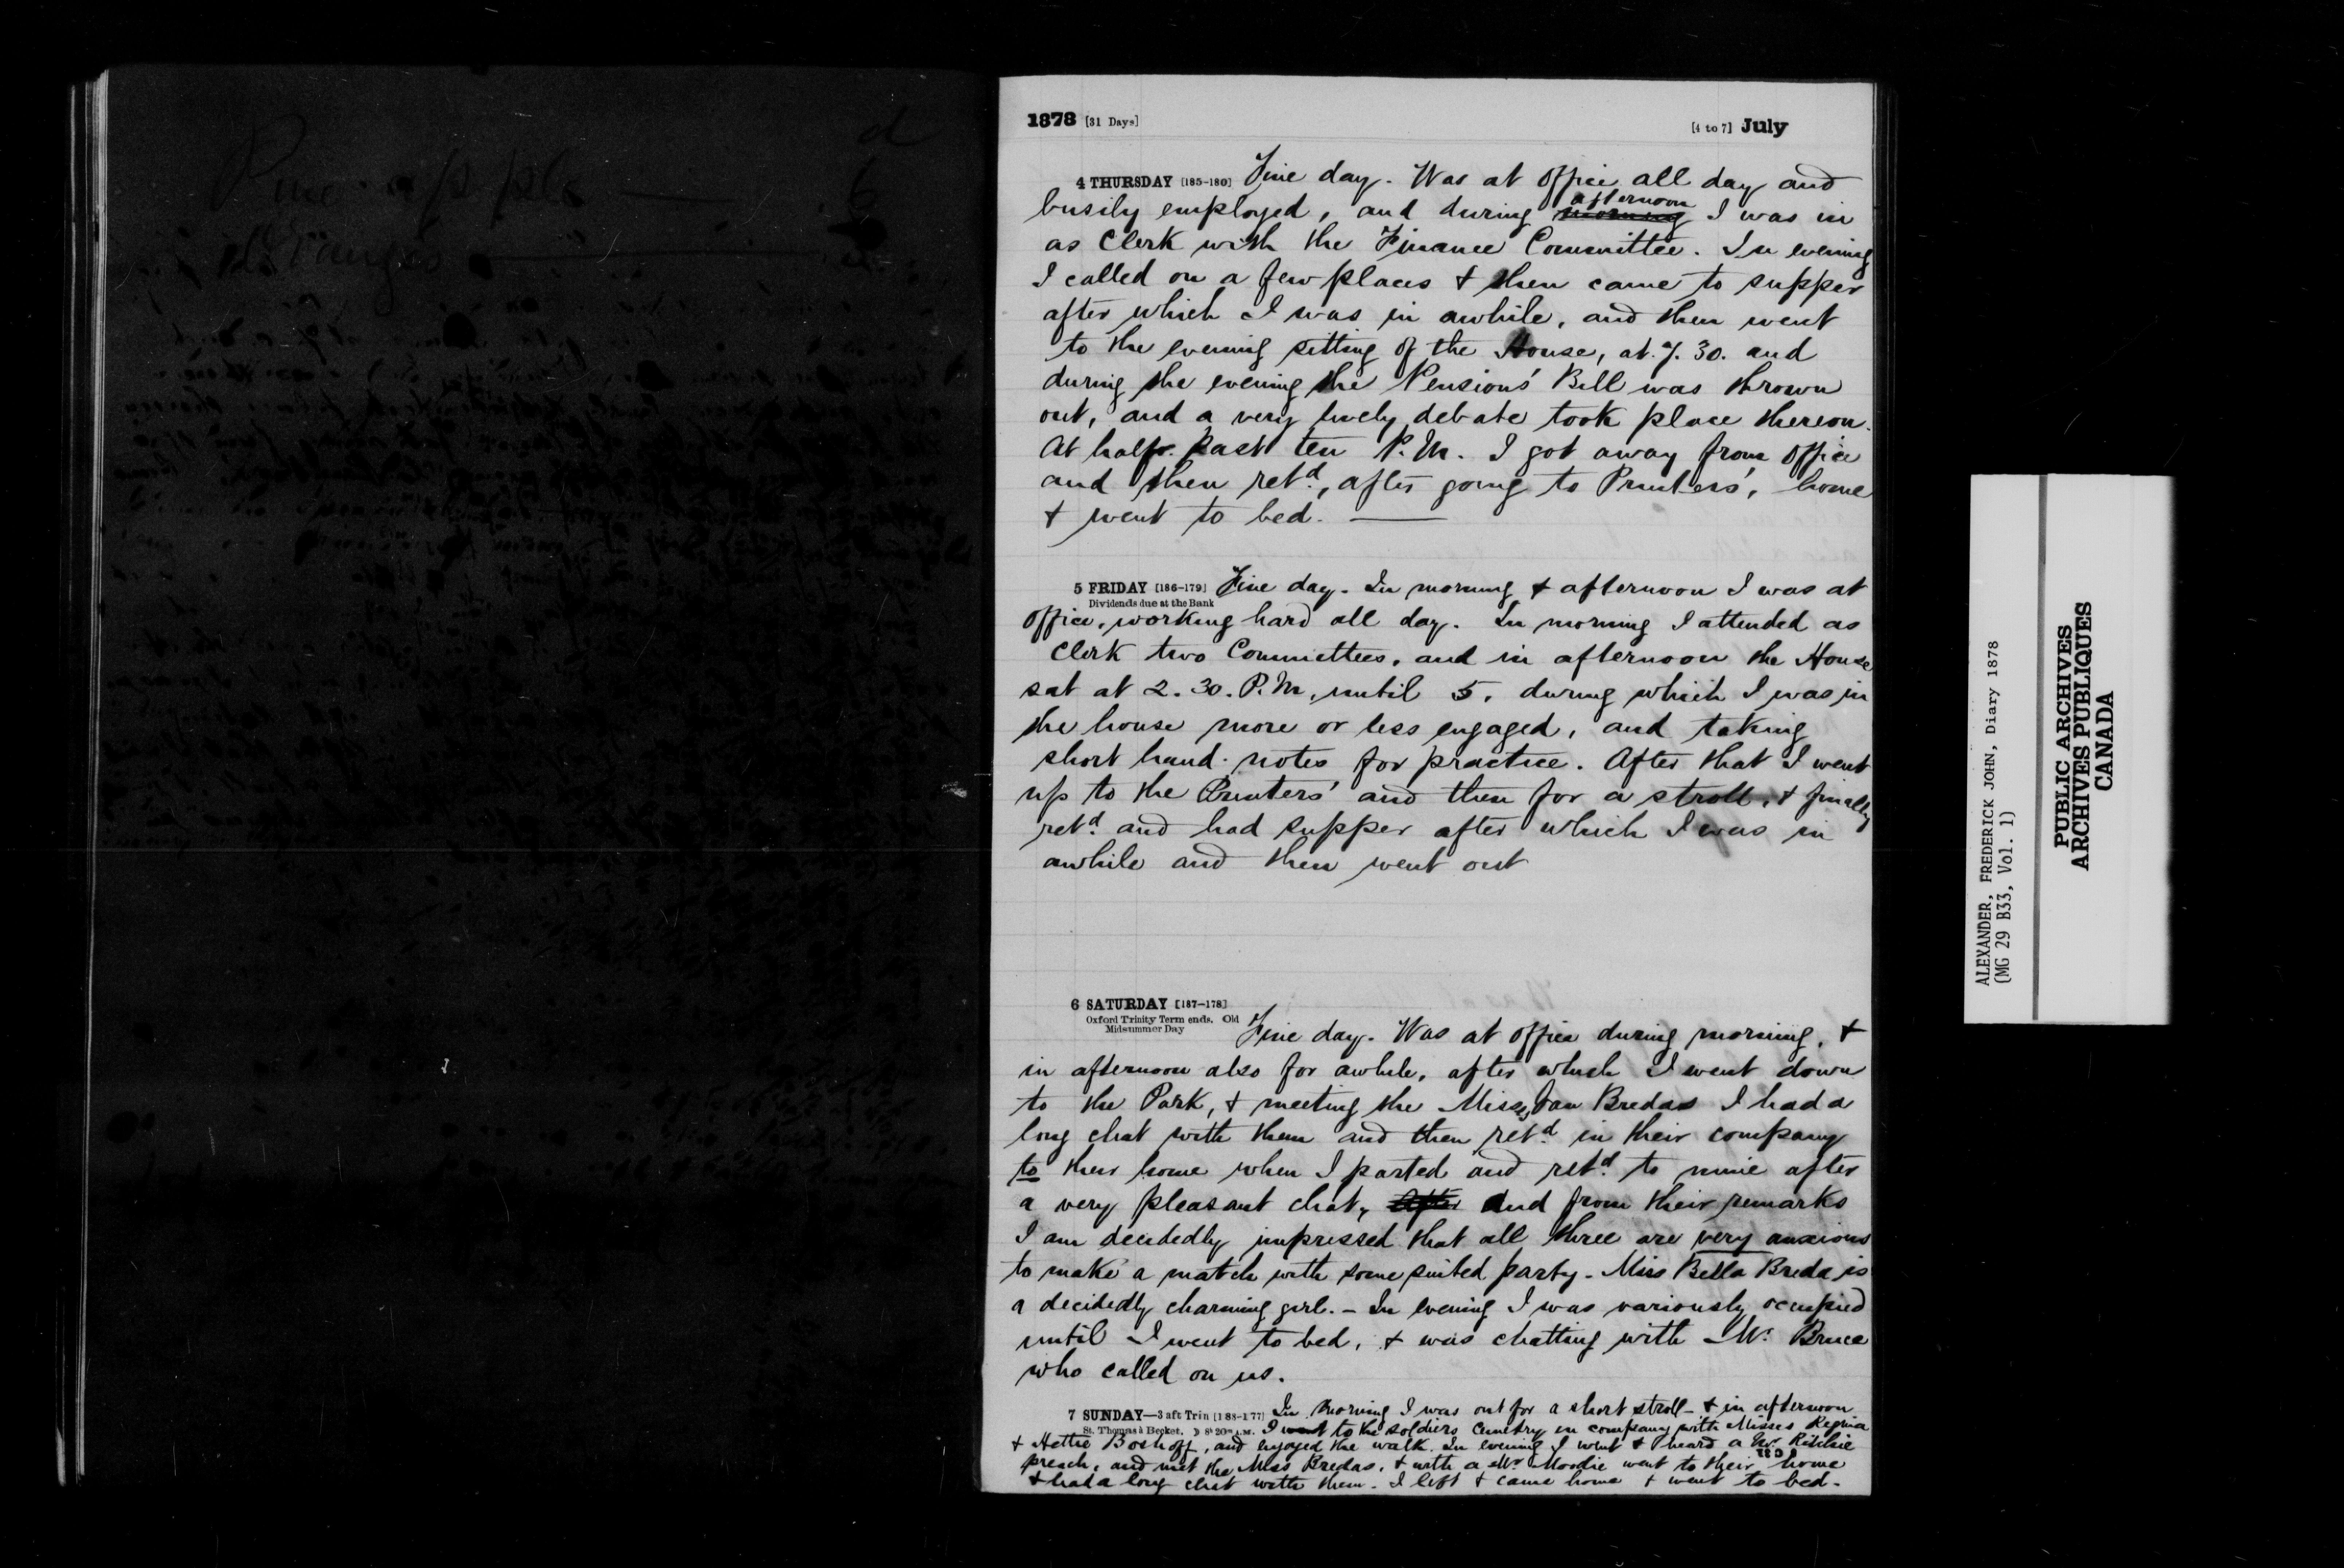 Pine apple — 6
d
1878 [31 Days]
[4 to 7] July
4 THURSDAY [185-180] Fine day. Was at office all day and
busily employed, and during morning afternoon I was in
as Clerk with the Finance Committee. In evening
I called on a few places & then came to supper
after which I was in awhile, and then went
to the evening sitting of the House, at 7.30. and
during the evening the Pensions' Bill was thrown
out, and a very lively debate took place thereon.
At half past ten P.M. I got away from office
and then retd., after going to Printers', home
& went to bed. —
5 FRIDAY [186-179] Fine day. In morning & afternoon I was at
Dividends due at the Bank
office, working hard all day. In morning I attended as
Clerk two Committees, and in afternoon the House
sat at 2.30. P.M, until 5, during which I was in
the house more or less engaged, and taking
short hand notes for practice. After that I went
up to the Printers' and then for a stroll, & finally
retd. and had supper after which I was in
awhile and then went out
6 SATURDAY [187-178]
Oxford Trinity Term ends. Old
Midsummer Day
Fine day. Was at office during morning, &
in afternoon also for awhile, after which I went down
to the Park, & meeting the Misses Van Bredas I had a
long chat with them and then retd. in their company
to their home when I parted and retd. to mine after
a very pleasant chat, After and from their remarks
I am decidedly impressed that all three are very anxious
to make a match with some suited party. Miss Bella Breda is
a decidedly charming girl. – In evening I was variously occupied
until I went to bed, & was chatting with Mr. Bruce
who called on us.
7 SUNDAY—3 aft Trin [188-177] In morning I was out for a short stroll – & in afternoon
St. Thomas à Becket. ☽ 8h 20m A.M. I went to the soldiers Cemetry in company with Misses Regina
& Hettie Boshoff, and enjoyed the walk. In evening I went & heard a Mr. Ritchie
preach, and met the Miss Bredas, & with a Mr. Moodie went to their home
& had a long chat with them. I left & came home & went to bed.
ALEXANDER, FREDERICK JOHN, Diary 1878
(MG 29 B33, Vol. 1)
PUBLIC ARCHIVES
ARCHIVES PUBLIQUES
CANADA